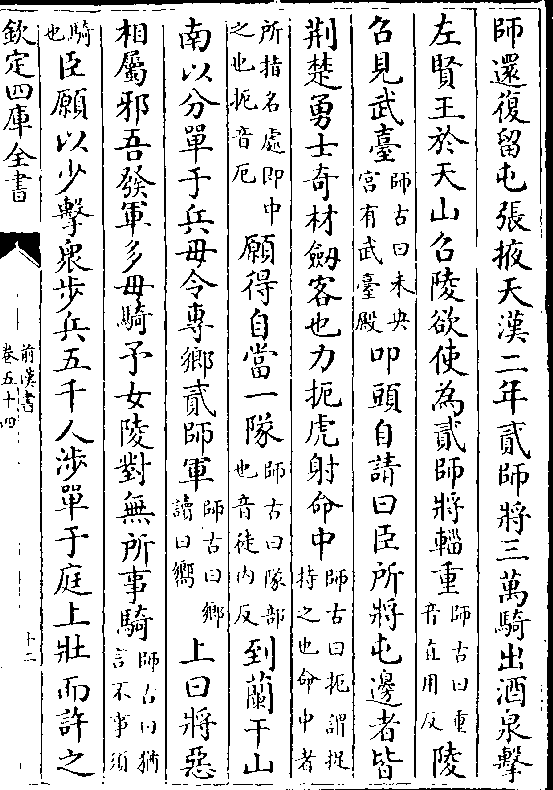 師還復留屯張掖天漢二年貳師將三萬騎出酒泉擊
左賢王於天山召陵欲使為貳師將輜重師古曰重音直用反陵
召見武臺師古曰未央宮有武臺殿叩頭自請曰臣所將屯邊者皆
荆楚勇士奇材劔客也力扼虎射命中師古曰扼謂捉持之也命中者
所指名處即中之也扼音厄願得自當一隊師古曰隊部也音徒内反到蘭干山
南以分單于兵毋令專鄉貳師軍師古曰鄉讀曰嚮上曰將惡
相屬邪吾發軍多毋騎予女陵對無所事騎師古曰猶言不事須
騎也臣願以少擊衆步兵五千人涉單于庭上壯而許之
欽定四庫全書
前漢書
卷五十四
十二